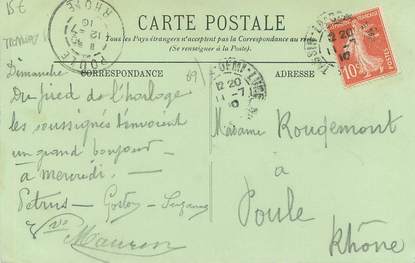 15€
CARTE POSTALE
Tous les Pays étrangers n'acceptent pas la Correspondance au recto
(Se renseigner à la Poste)
CORRESPONDANCE
ADRESSE
POULE
RHONE
12 20
11 -7
10
12 20
11 -7
10
10c
69
Dimanche
Du pied de l'horloge
les soussignés t'envoient
un grand bonjour
à mercredi. —
Petrus —
Mauron
Madame Rougemont
à
Poule
Rhône